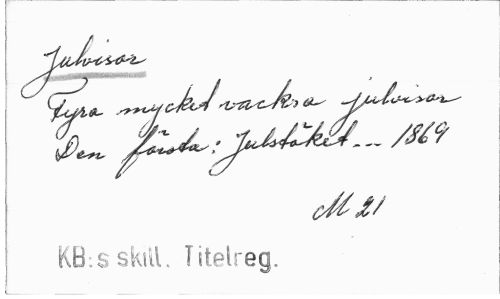 Julvisor
Fyra mycket vackra julvisor
Den första: Julstöket... 1869
M 21
KB:s skill. Titelreg.